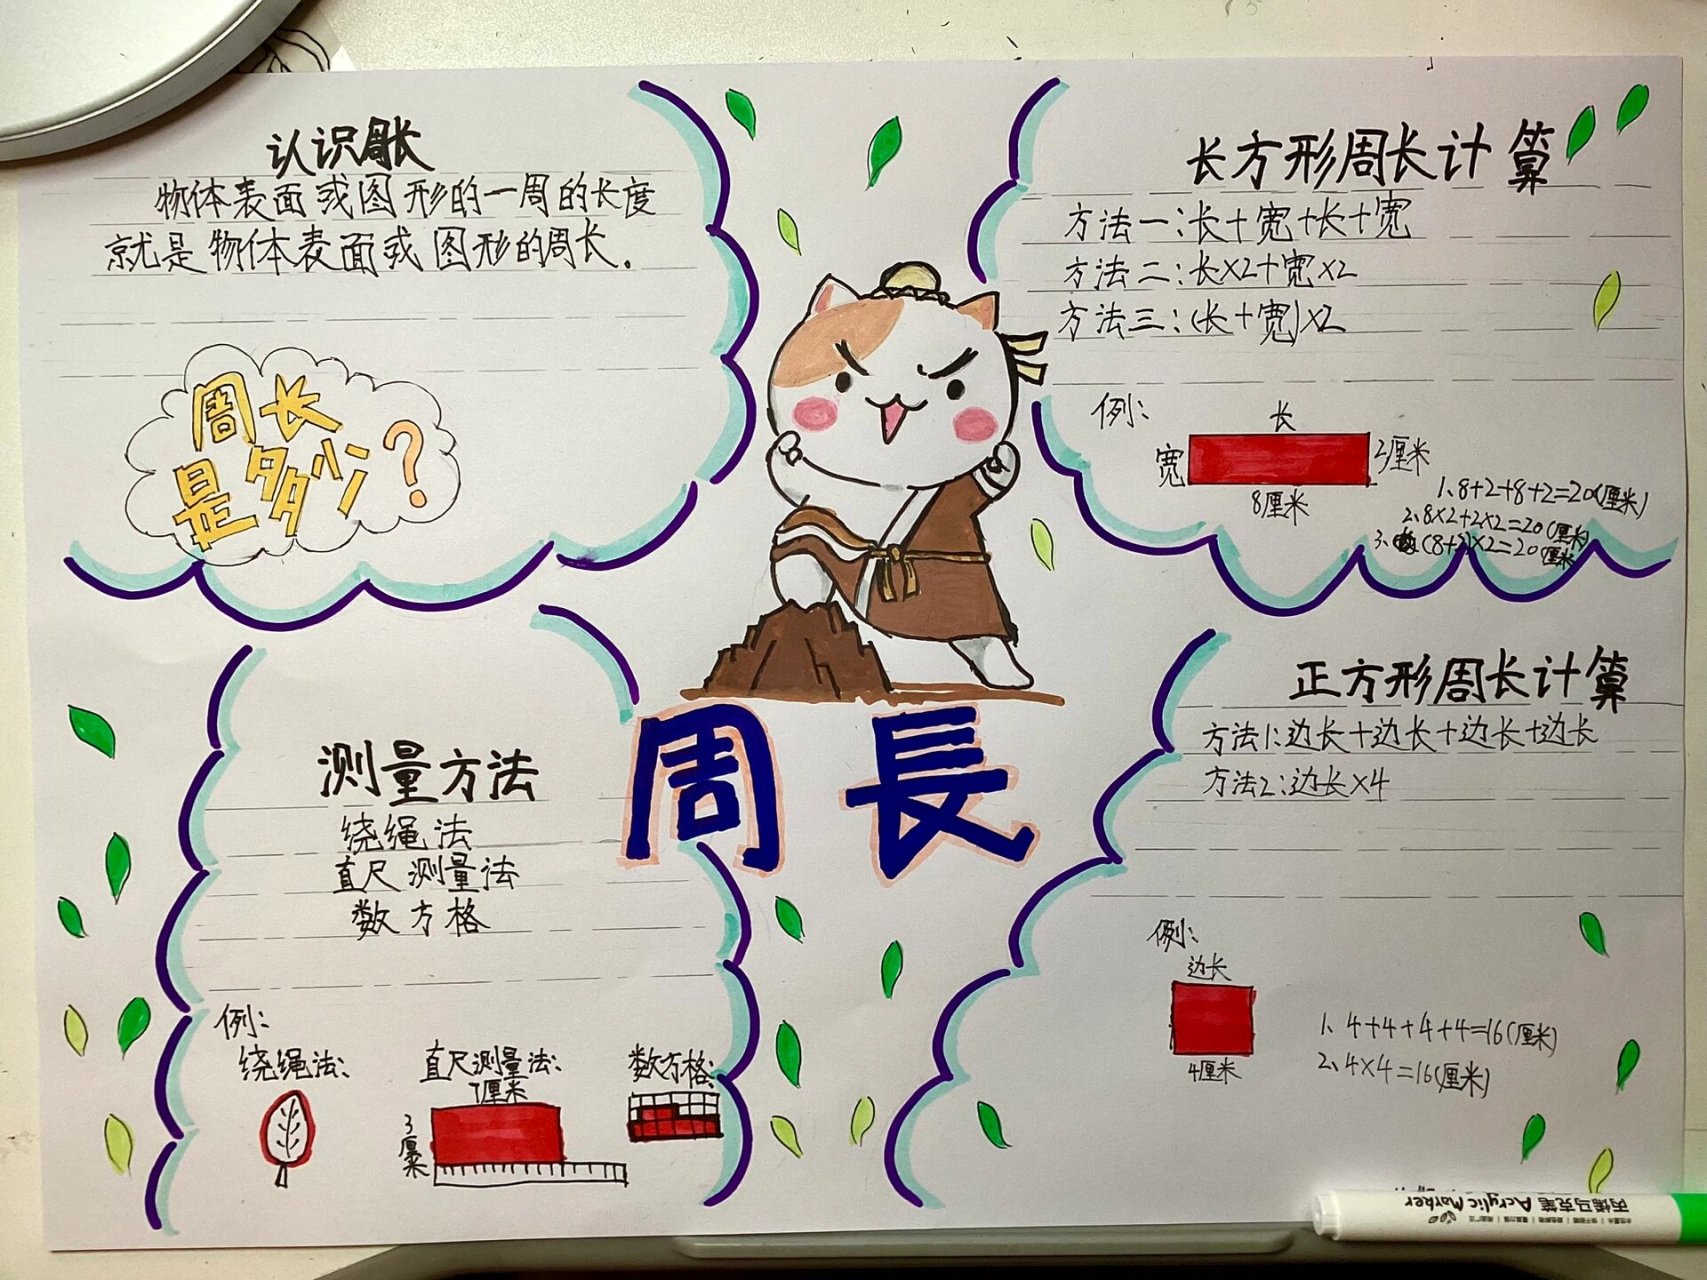 认识周长
物体表面或图形的一周的长度
就是物体表面或图形的周长.
周长
是多少?
长方形周长计算
方法一:长+宽+长+宽
方法二:长×2+宽×2
方法三:(长+宽)×2
例:
长
宽
2厘米
8厘米
1、8+2+8+2=20(厘米)
2、8×2+2×2=20(厘米)
3、(8+2)×2=20(厘米)
周長
测量方法
绕绳法
直尺测量法
数方格
例:
绕绳法:
直尺测量法:
数方格:
7厘米
3厘米
正方形周长计算
方法1:边长+边长+边长+边长
方法2:边长×4
例:
边长
4厘米
1、4+4+4+4=16(厘米)
2、4×4=16(厘米)
丙烯马克笔 Acrylic Marker